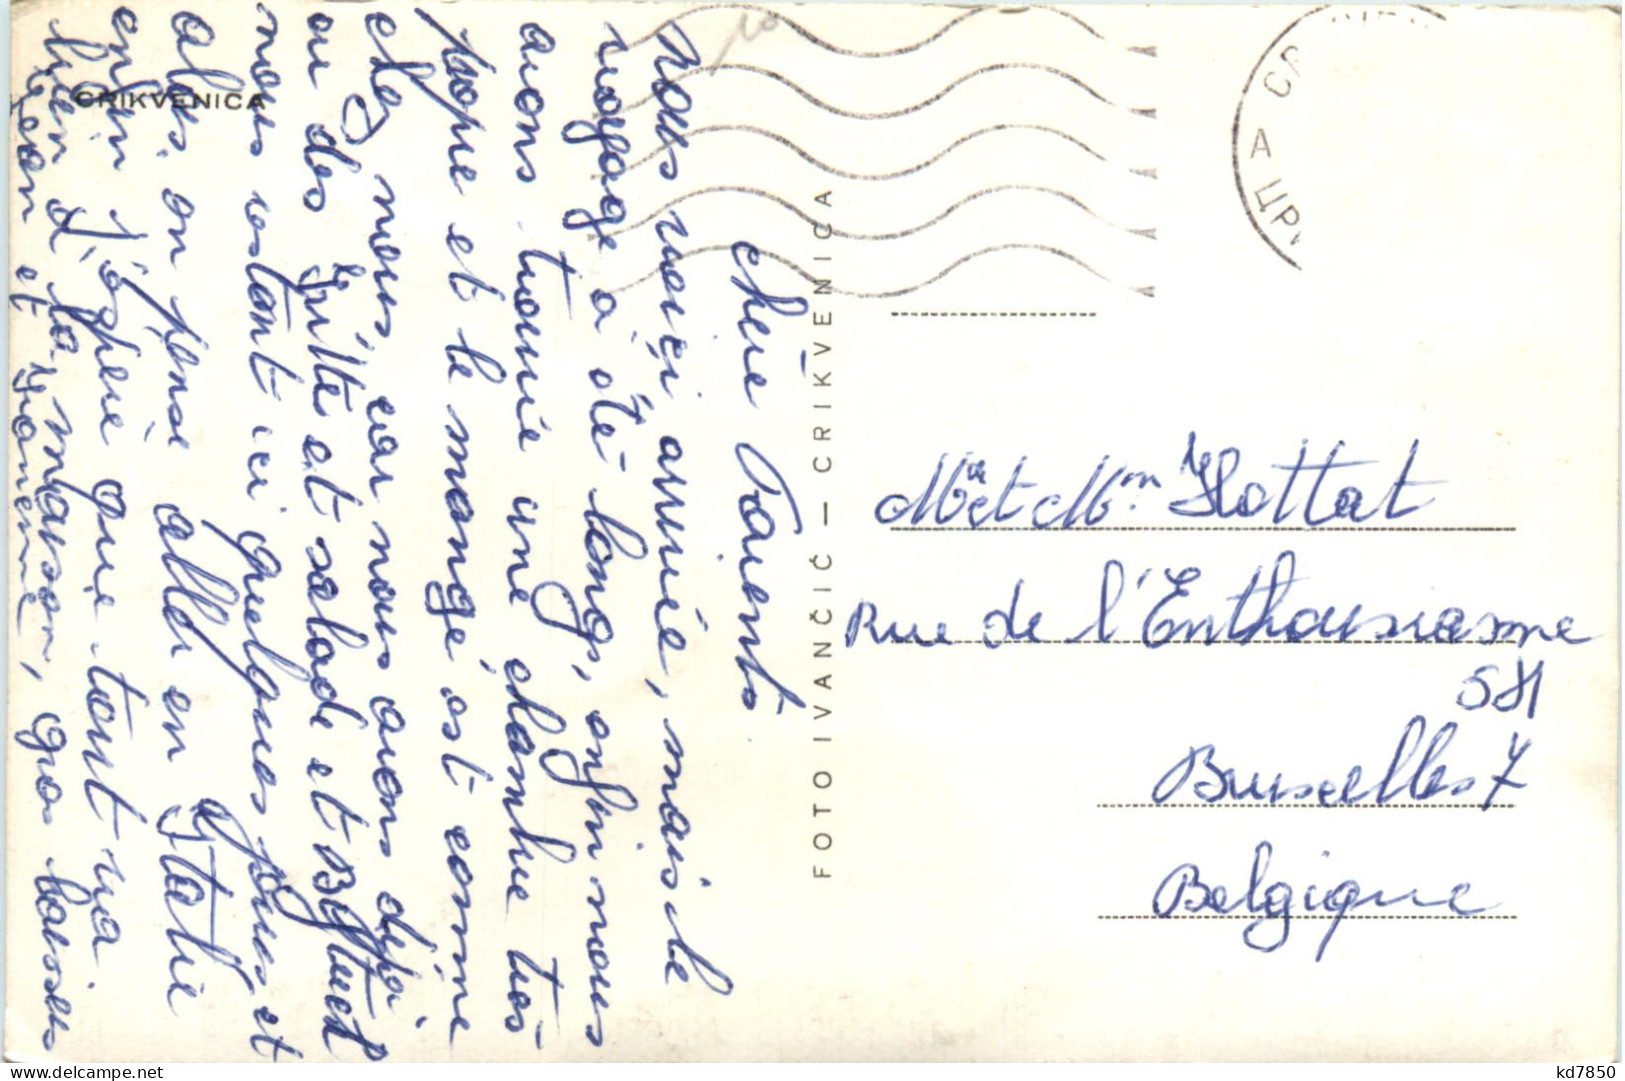 CRIKVENICA
chère Parents
Nous voici arrivé, mais le
voyage a été long, enfin nous
avons trouvé une chambre très
propre et le mangé est comme
chez nous, car nous avons déjà
eu des frites et salade et Bifteck
nous restant ici quelques jours et
alors, on pense aller en Italie
enfin j'espère que tout va
bien à la maison, gros baisers
et
FOTO IVANČIĆ — CRIKVENICA
A ЦРИ
Mr et Mm Hottat
Rue de l'Enthousiasme
Bruxelles 7
Belgique
kd7850